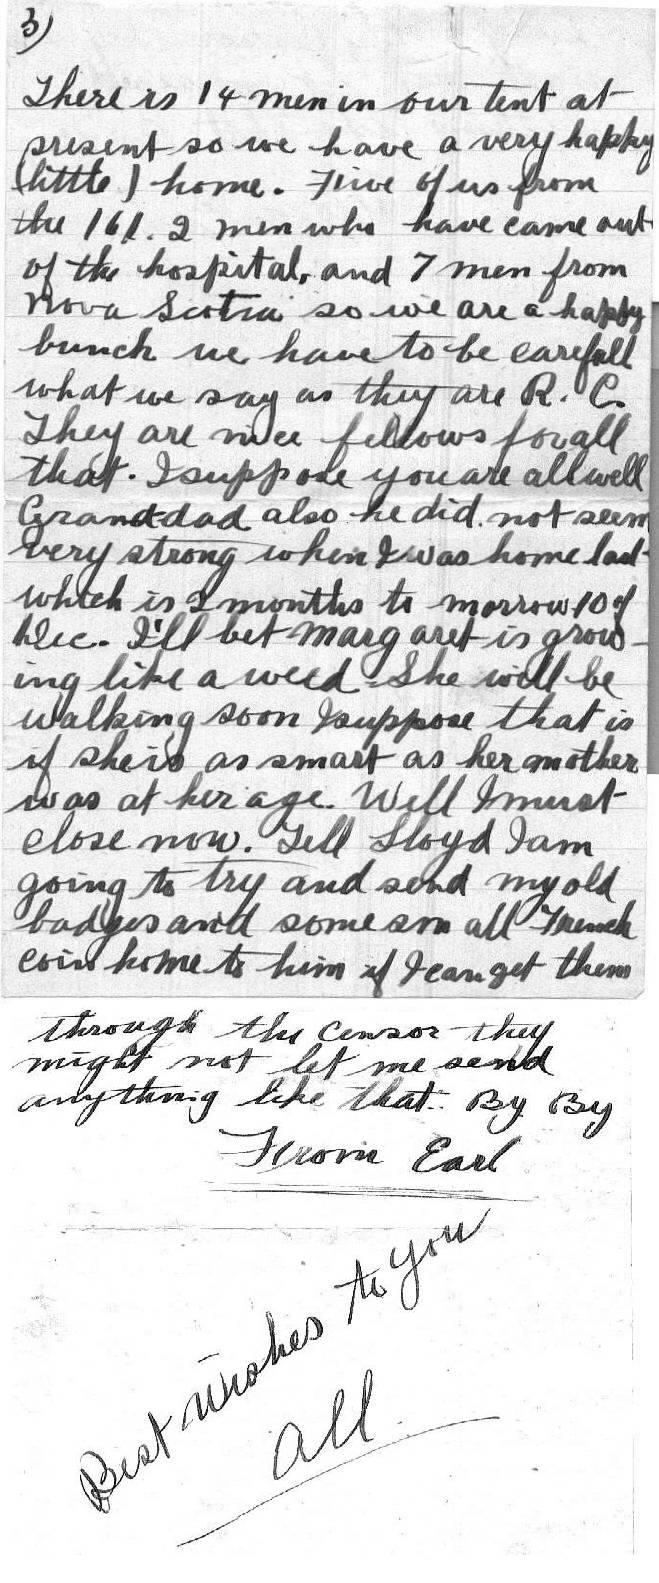 3)
There is 14 men in our tent at
present so we have a very happy
(little) home. Five of us from
the 161. 2 men who have came out
of the hospital, and 7 men from
Nova Scotia so we are a happy
bunch we have to be carefull
what we say as they are R. C.
They are nice fellows for all
that. I suppose you are all well
Granddad also he did not seem
very strong when I was home last
which is 2 months to morrow 10 of
Dec. I'll bet Margaret is grow-
ing like a weed. She will be
walking soon I suppose that is
if she is as smart as her mother
was at her age. Well I must
close now. Tell Lloyd I am
going to try and send my old
badges and some small French
coin home to him if I can get them
through the censor they
might not let me send
anything like that. By By
From Earl
Best Wishes to You
All